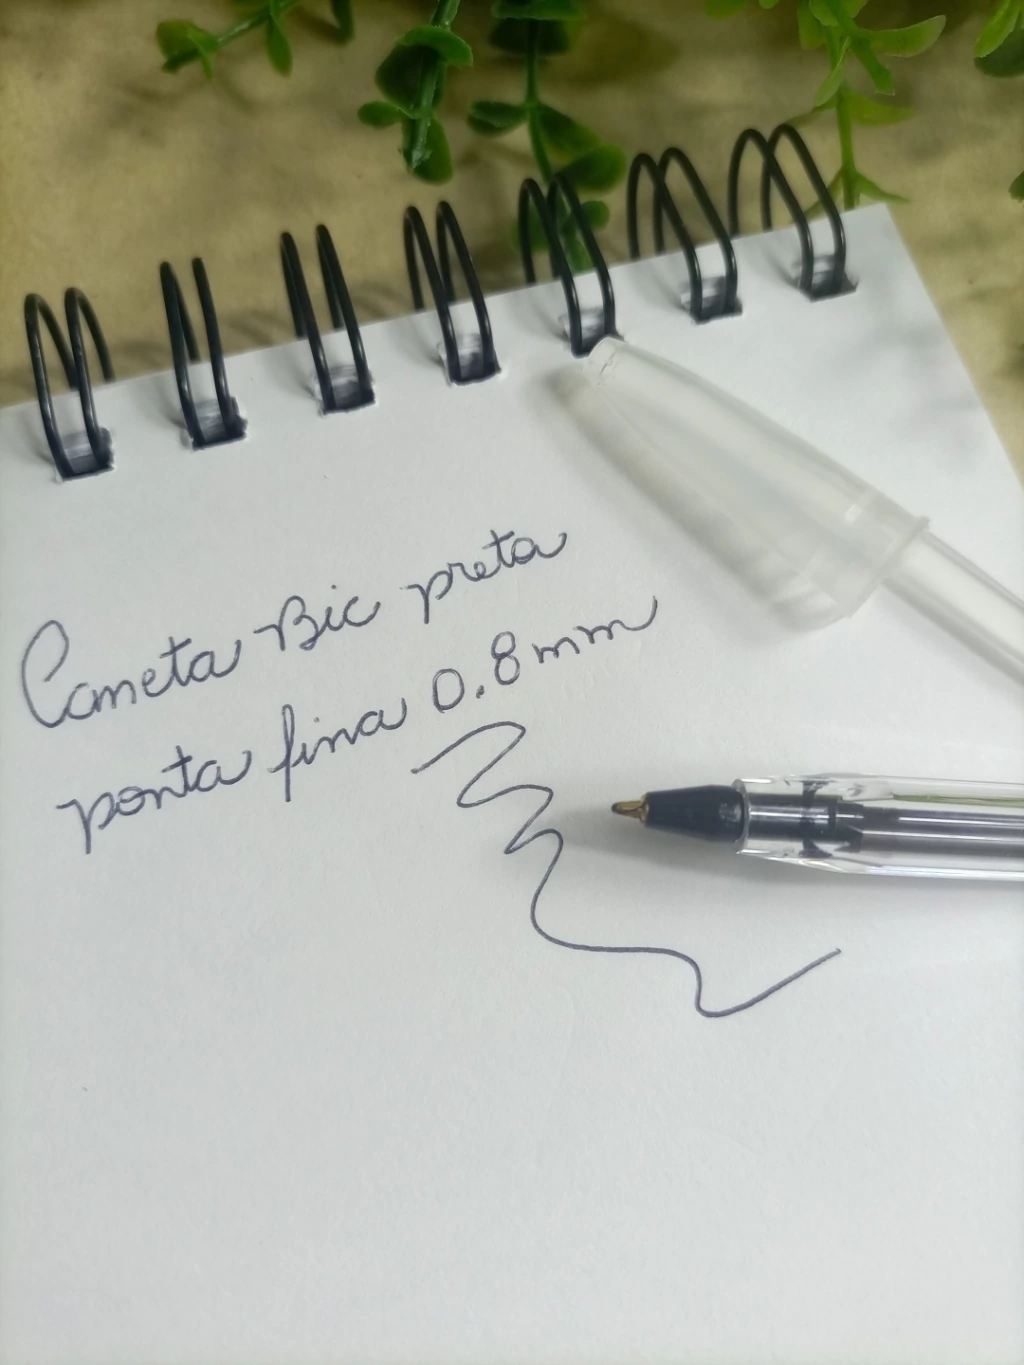 Caneta Bic preta
ponta fina 0.8mm